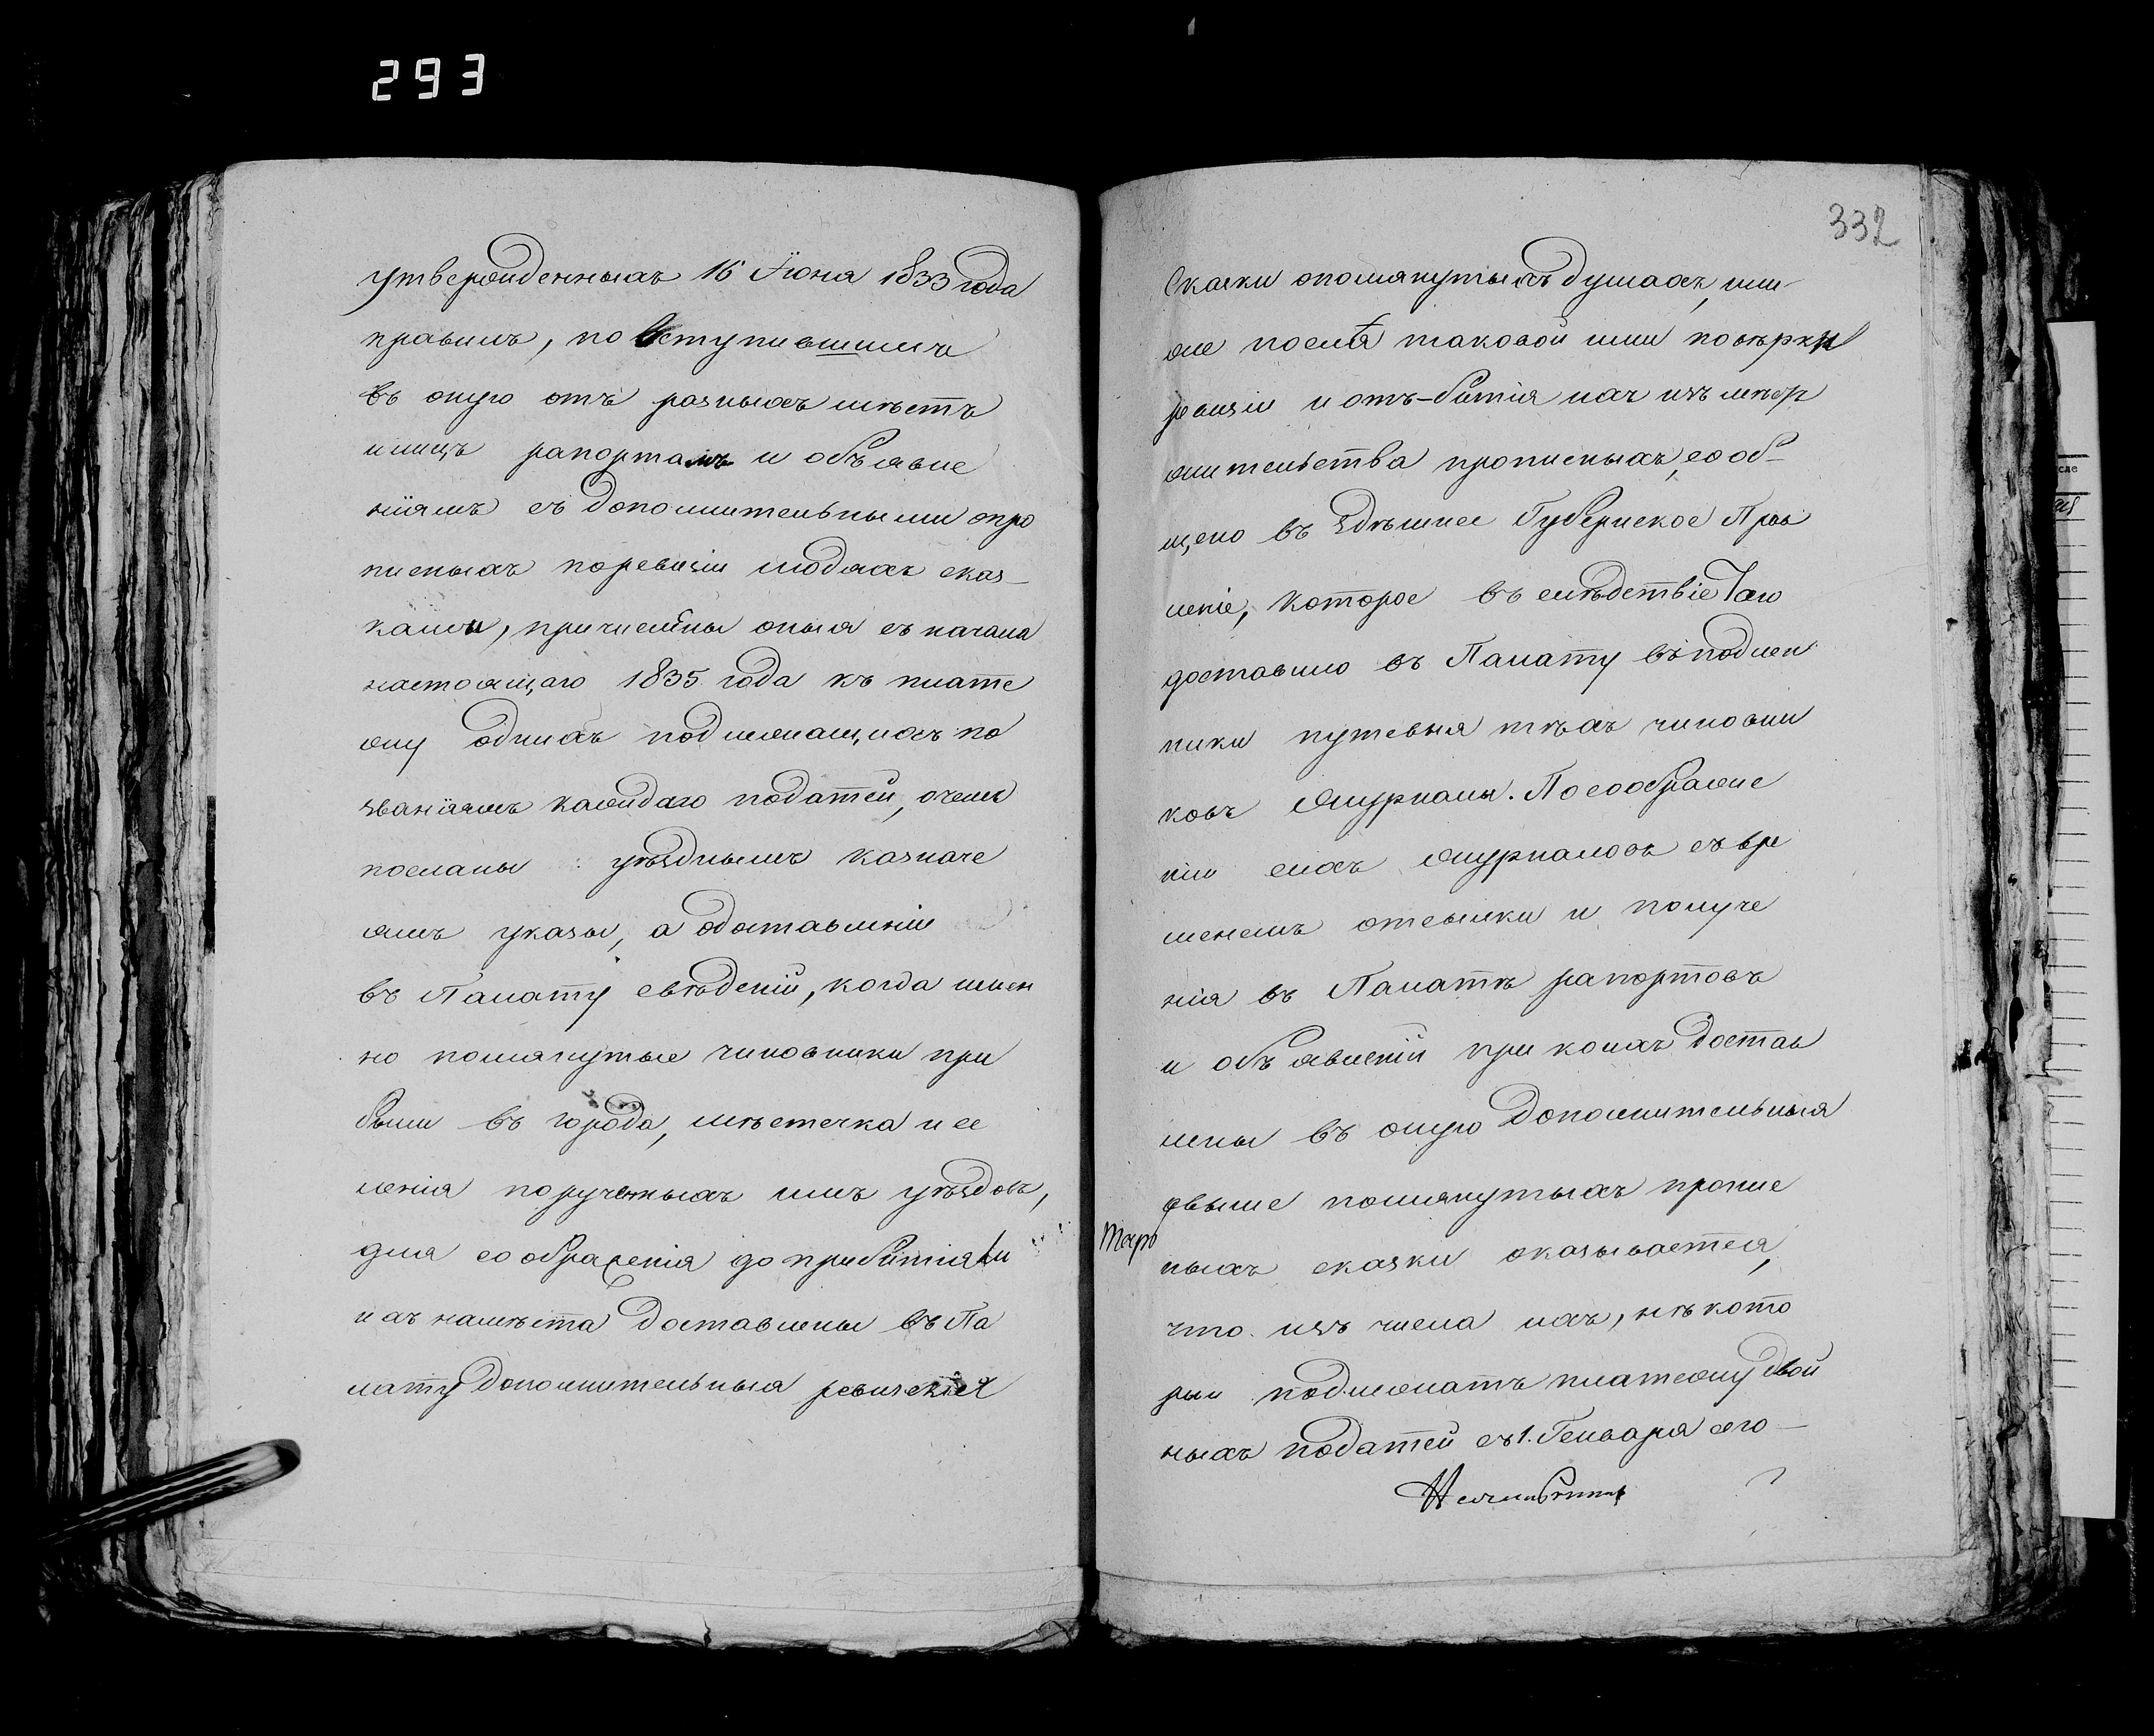 293
утвержденныхъ 16 Іюня 1833 года
правилъ, по вступившимъ
въ оную отъ разныхъ мѣстъ
и лицъ рапортамъ и объявле
ніямъ съ дополнительными о про
писныхъ по ревизіи людяхъ сказ-
ками, причислены оныя съ начала
настоящаго 1835 года къ плате
жу однихъ подлежащихъ по
званіямъ каждаго податей, о чемъ
посланы уѣзднымъ казначе
ямъ указы, а о доставленіи
въ Палату свѣденій, когда имен
но помянутые чиновники при
были въ города, мѣстечка и се
ленія порученныхъ имъ уѣздовъ,
для соображенія до прибытія ли
ихъ на мѣста доставлены въ Па
лату дополнительныя ревизскія
332
Сказки о помянутыхъ душахъ, или
же послѣ таковой ими повѣрки
ревизіи и отъ-бытія ихъ изъ мѣстъ
жительства прописныхъ, сооб-
щено въ здѣшнее Губернское Прав
леніе, которое въ слѣдствіе того
доставило въ Палату въ подлен
нике путевыя тѣхъ чиновни
ковъ Журналы. По соображе
ніи сихъ журналовъ съ вре
менемъ отсылки и получе
нія въ Палатѣ рапортовъ
и объявленій при коихъ достав
лены въ оную дополнительныя
о выше помянутыхъ пропис
ныхъ сказки оказывается,
что изъ числа ихъ, нѣкото
рыи подлежатъ платежу двой
ныхъ податей съ 1. Генваря сего